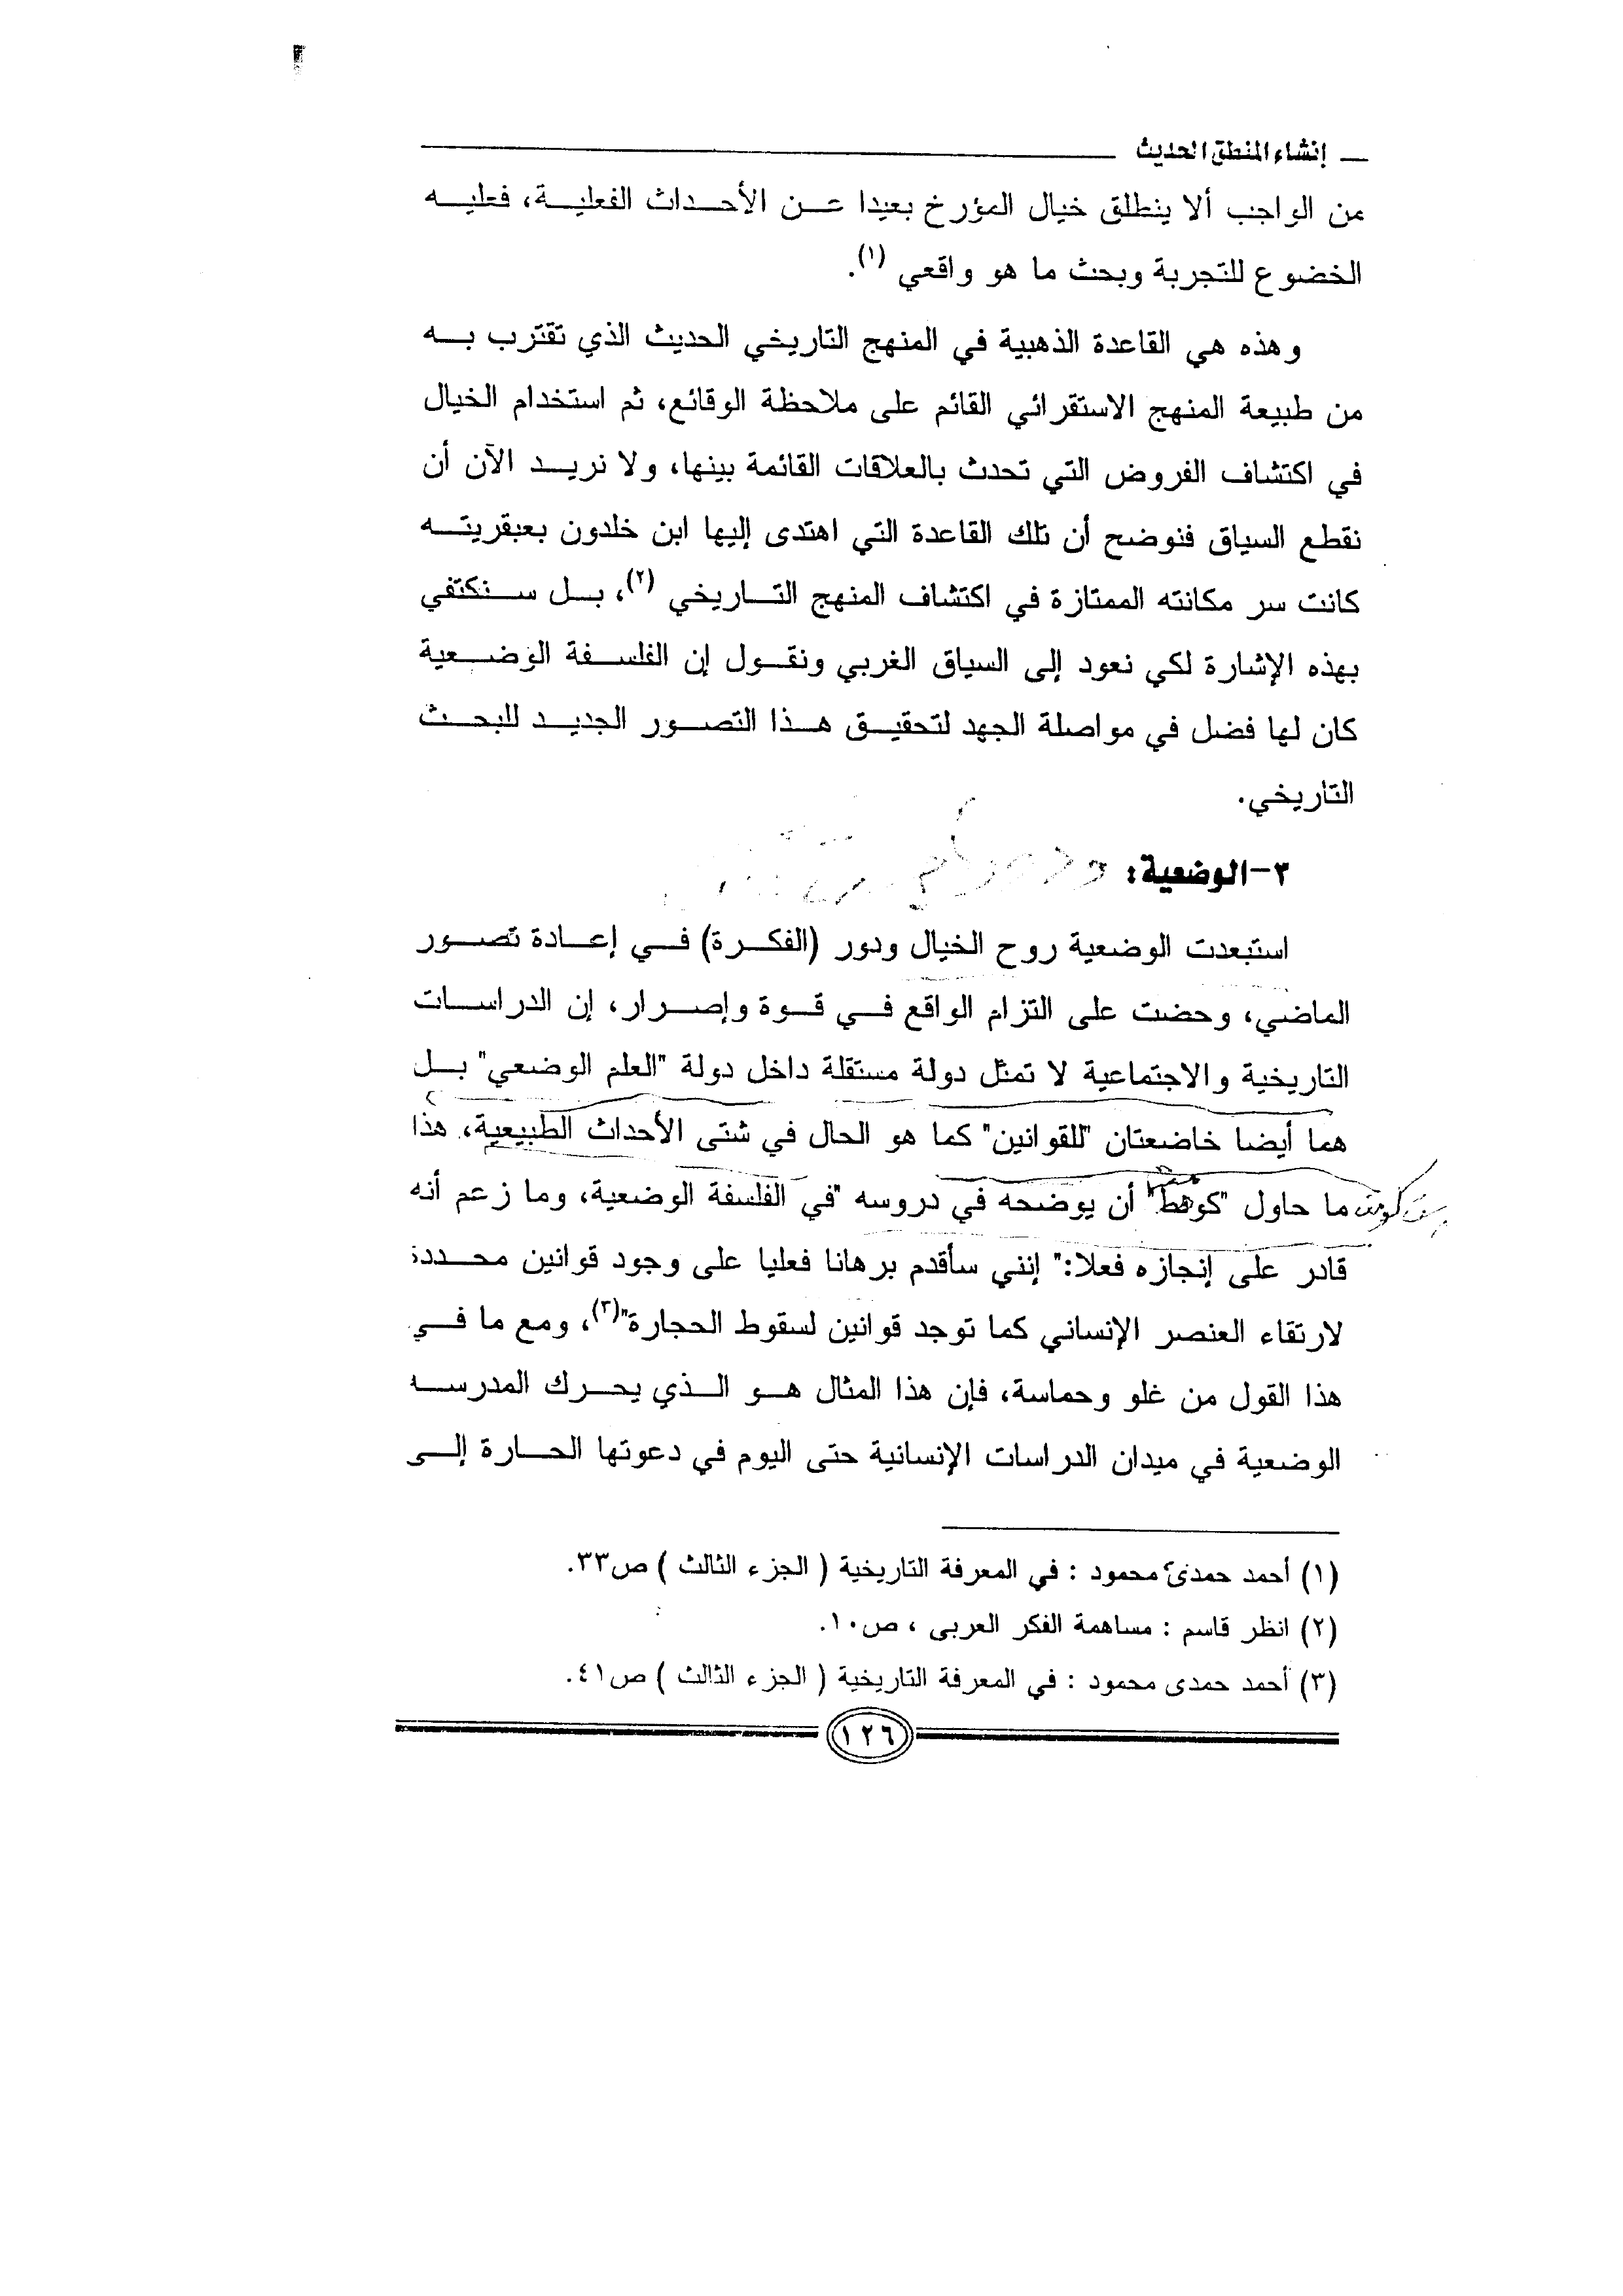 إنشاء المنطق الحديث
من الواجب ألا ينطلق خيال المؤرخ بعيدا عن الأحداث الفعلية، فعليه
الخضوع للتجربة وبحث ما هو واقعي (١).
وهذه هي القاعدة الذهبية في المنهج التاريخي الحديث الذي تقترب به
من طبيعة المنهج الاستقرائي القائم على ملاحظة الوقائع، ثم استخدام الخيال
في اكتشاف الفروض التي تحدث بالعلاقات القائمة بينها، ولا نريد الآن أن
نقطع السياق فنوضح أن تلك القاعدة التي اهتدى إليها ابن خلدون بعبقريته
كانت سر مكانته الممتازة في اكتشاف المنهج التاريخي (٢)، بل سنكتفي
بهذه الإشارة لكي نعود إلى السياق الغربي ونقول إن الفلسفة الوضعية
كان لها فضل في مواصلة الجهد لتحقيق هذا التصور الجديد للبحث
التاريخي.
٣-الوضعية:
استبعدت الوضعية روح الخيال ودور (الفكرة) في إعادة تصور
الماضي، وحضت على التزام الواقع في قوة وإصرار، إن الدراسات
التاريخية والاجتماعية لا تمثل دولة مستقلة داخل دولة "العلم الوضعي" بل
هما أيضا خاضعتان "للقوانين" كما هو الحال في شتى الأحداث الطبيعية، هذا
ما حاول "كوهط" أن يوضحه في دروسه "في الفلسفة الوضعية، وما زعم أنه
كومت
قادر على إنجازه فعلا:" إنني سأقدم برهانا فعليا على وجود قوانين محددة
لارتقاء العنصر الإنساني كما توجد قوانين لسقوط الحجارة"(٣)، ومع ما في
هذا القول من غلو وحماسة، فإن هذا المثال هو الذي يحرك المدرسه
الوضعية في ميدان الدراسات الإنسانية حتى اليوم في دعوتها الحارة إلى
(١) أحمد حمدى محمود : في المعرفة التاريخية ( الجزء الثالث ) ص٣٣.
(٢) انظر قاسم : مساهمة الفكر العربى ، ص١٠.
(٣) أحمد حمدى محمود : في المعرفة التاريخية ( الجزء الثالث ) ص٤١.
١٢٦